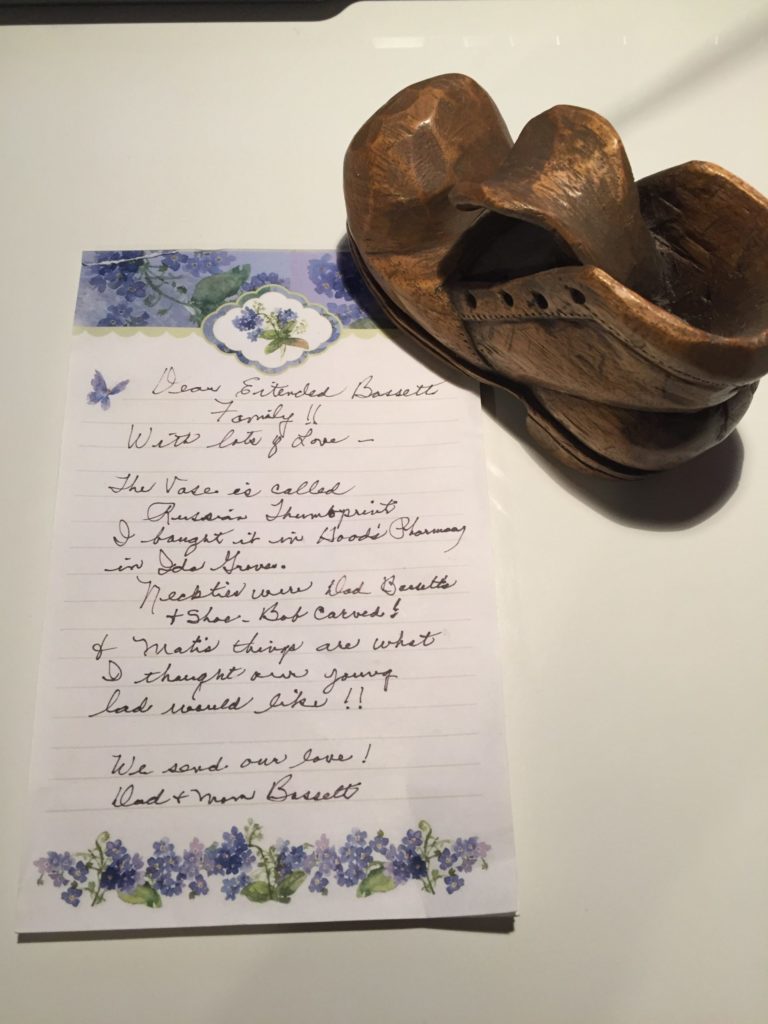 Dear Extended Bassett
Family!!
With lots of Love –
The Vase is called
Russian Thumbprint
I bought it in Hood's Pharmacy
in Ida Grove.
Neckties were Dad Bassett's
+ Shoe - Bob Carved!
& Mati's things are what
I thought our young
lad would like!!
We send our love!
Dad + Mom Bassett